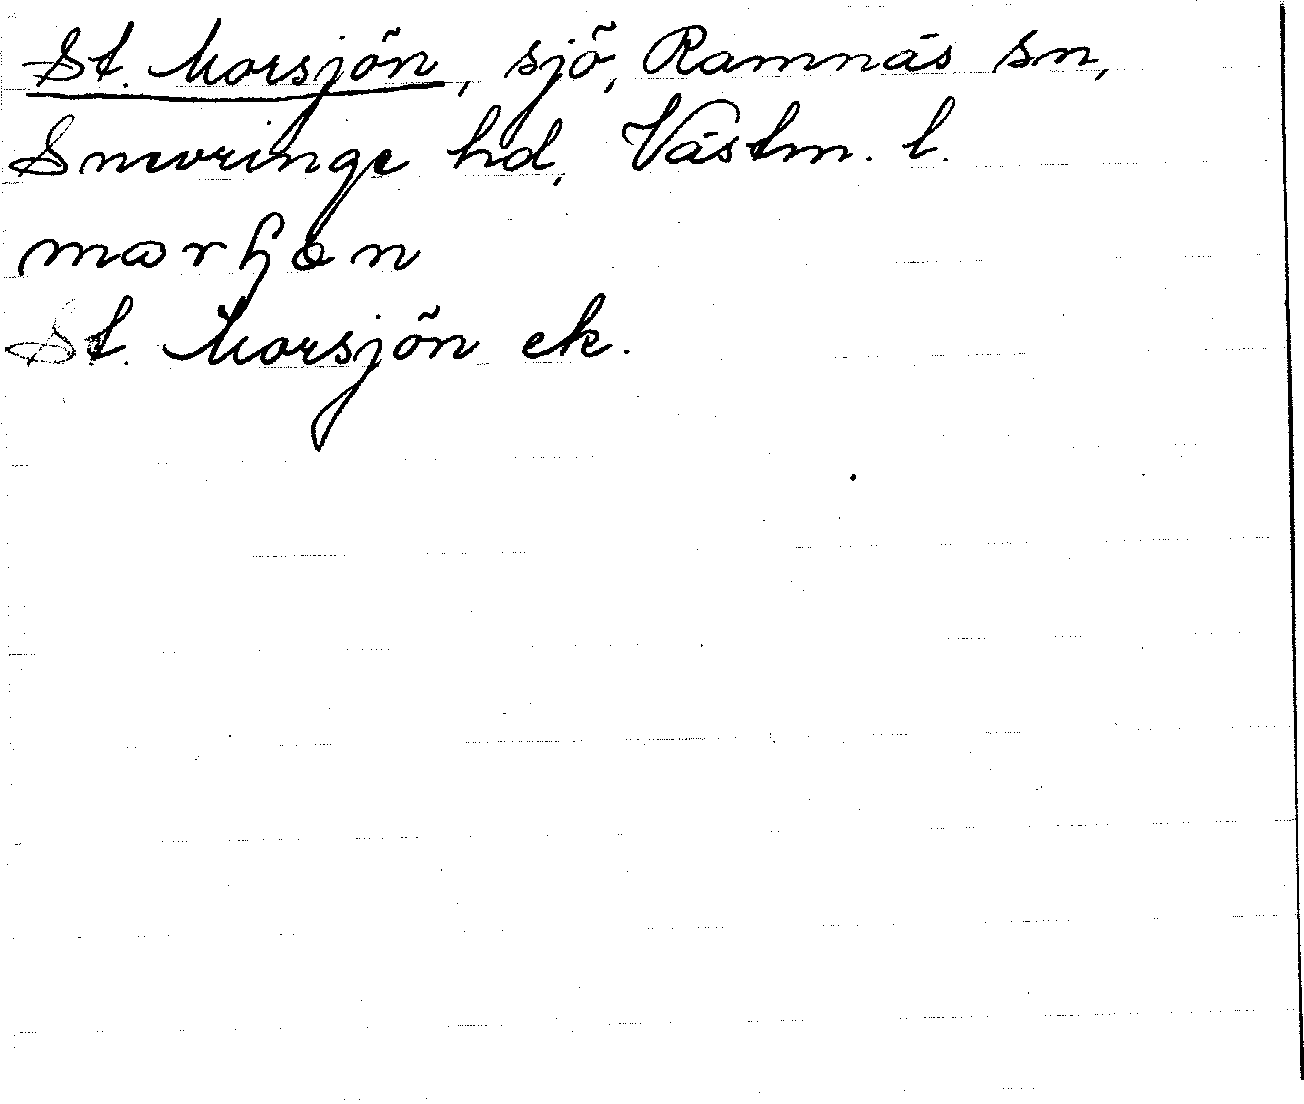 St. Morsjön, sjö, Ramnäs sn,
Snevringe hd, Västm. l.
St. Morsjön ek.